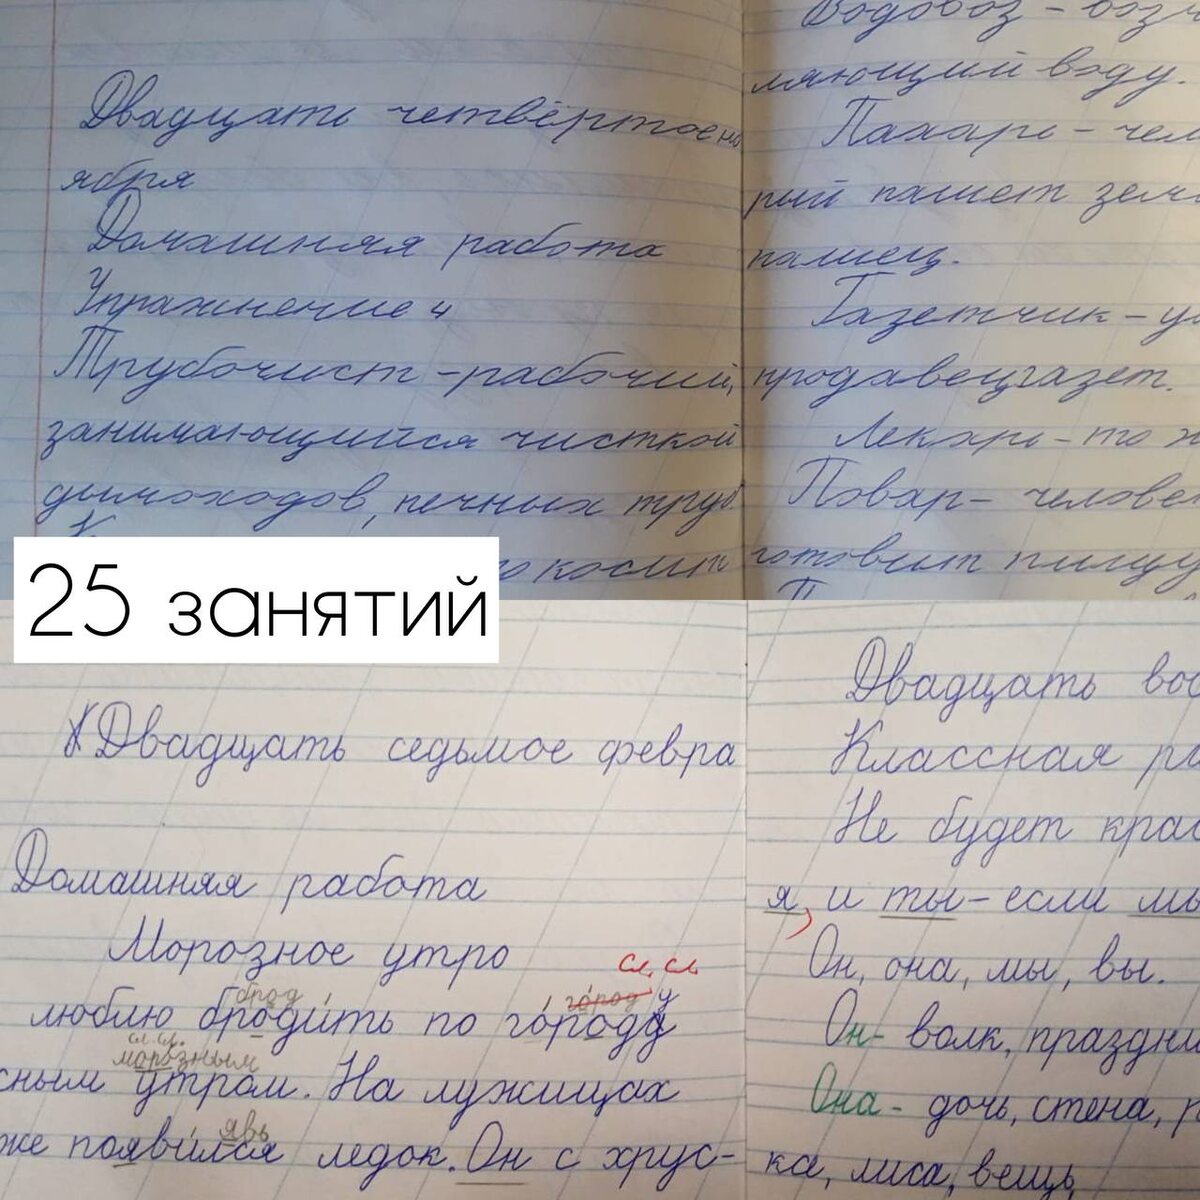 Двадцать четвёртое но
ября
Домашняя работа
Упражнение 4
Трубочист - рабочий,
занимающийся чисткой
дымоходов, печных труб
косит
Водовоз - воз
ляющий воду.
Пахарь - чел
рый пашет зем
пашец.
Газетчик - у
продавец газет.
Лекарь - то ж
Повар - челове
готовит пищу
25 занятий
Двадцать седьмое февра
Домашняя работа
Морозное утро
сл. сл.
брод город у
люблю бродить по городу
сл. сл.
морозным
сным утром. На лужицах
явь
же появился ледок. Он с хрус-
Двадцать вос
Классная ра
Не будет крас
я, и ты - если мы
Он, она, мы, вы.
Он - волк, праздни
Она - дочь, стена, р
ка, лиса, вещь